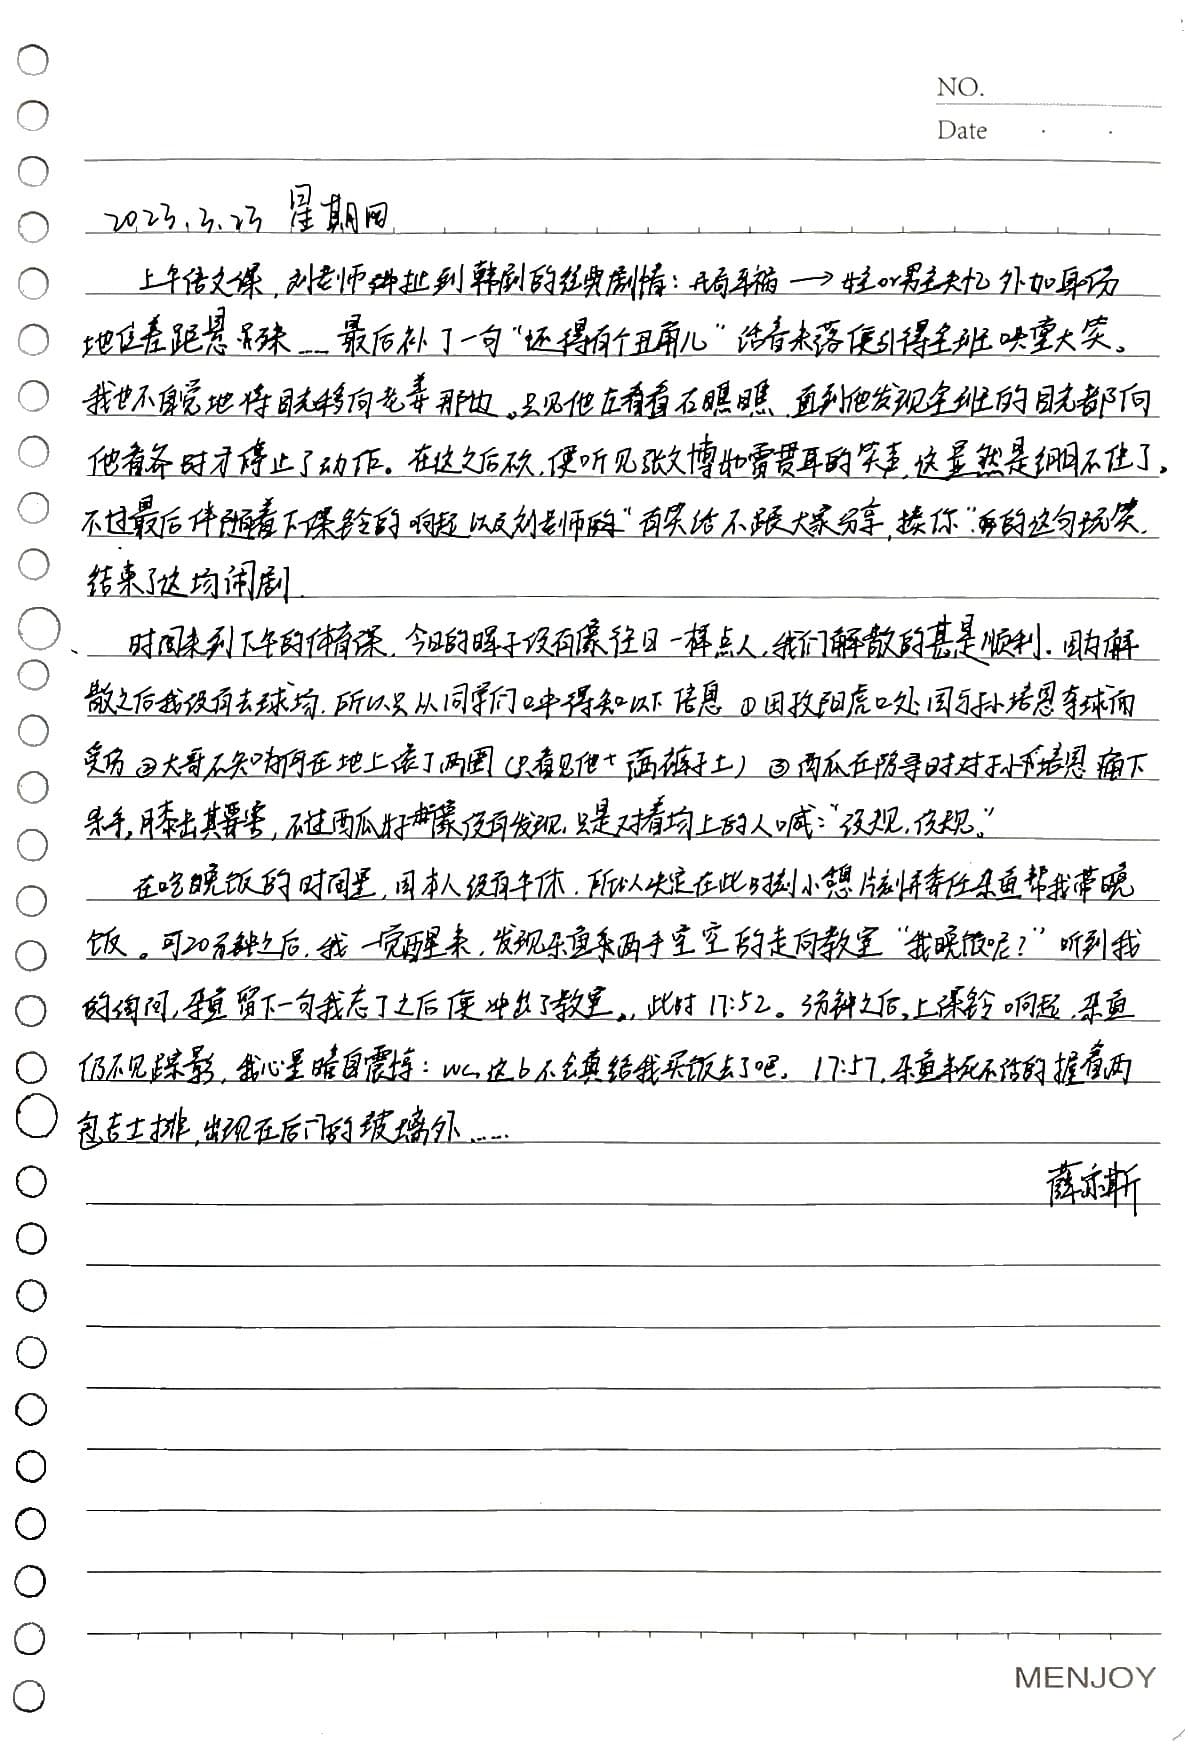 NO.
Date
2023.3.23 星期四
上午语文课，刘老师胡扯到韩剧的经典剧情：开局车祸→女主or男主失忆 外加身份
地位差距悬殊……最后补了一句“还得有个丑角儿”话音未落便引得全班哄堂大笑。
我也不自觉地将目光移向老姜那边。只见他左看看右瞧瞧，直到他发现全班的目光都向
他看齐时才停止了动作。在这之后，便听见张文博如雷贯耳的笑声，这显然是绷不住了。
不过最后伴随着下课铃的响起以及刘老师的“有笑话不跟大家分享，揍你”的这句玩笑，
结束了这场闹剧.
时间来到下午的体育课，今日的晖子没有像往日一样点人，我们解散的甚是顺利. 因为解
散之后我没有去球场，所以只从同学们口中得知以下信息 ①田孜阳虎口处因与孙培恩夺球而
受伤 ②大哥不知为何在地上滚了两圈（只看见他一裤子土） ③西瓜在防守时对孙培恩痛下
杀手，膝击其要害，不过西瓜好像没有发现，只是对着场上的人喊：“没规，没规。”
在吃晚饭的时间里，因本人没有午休，所以决定在此时刻小憩片刻并委任杂鱼帮我带晚
饭。可20分钟之后，我一觉醒来，发现杂鱼两手空空的走向教室“我晚饭呢？”听到我
的询问，杂鱼留下一句我忘了之后便冲出了教室。，此时17:52。3分钟之后，上课铃响起，杂鱼
仍不见踪影，我心里暗自震惊：wc，这b不会真给我买饭去了吧。17:57，杂鱼半死不活的握着两
包吉士排，出现在后门的玻璃外……
薛亦斯
MENJOY